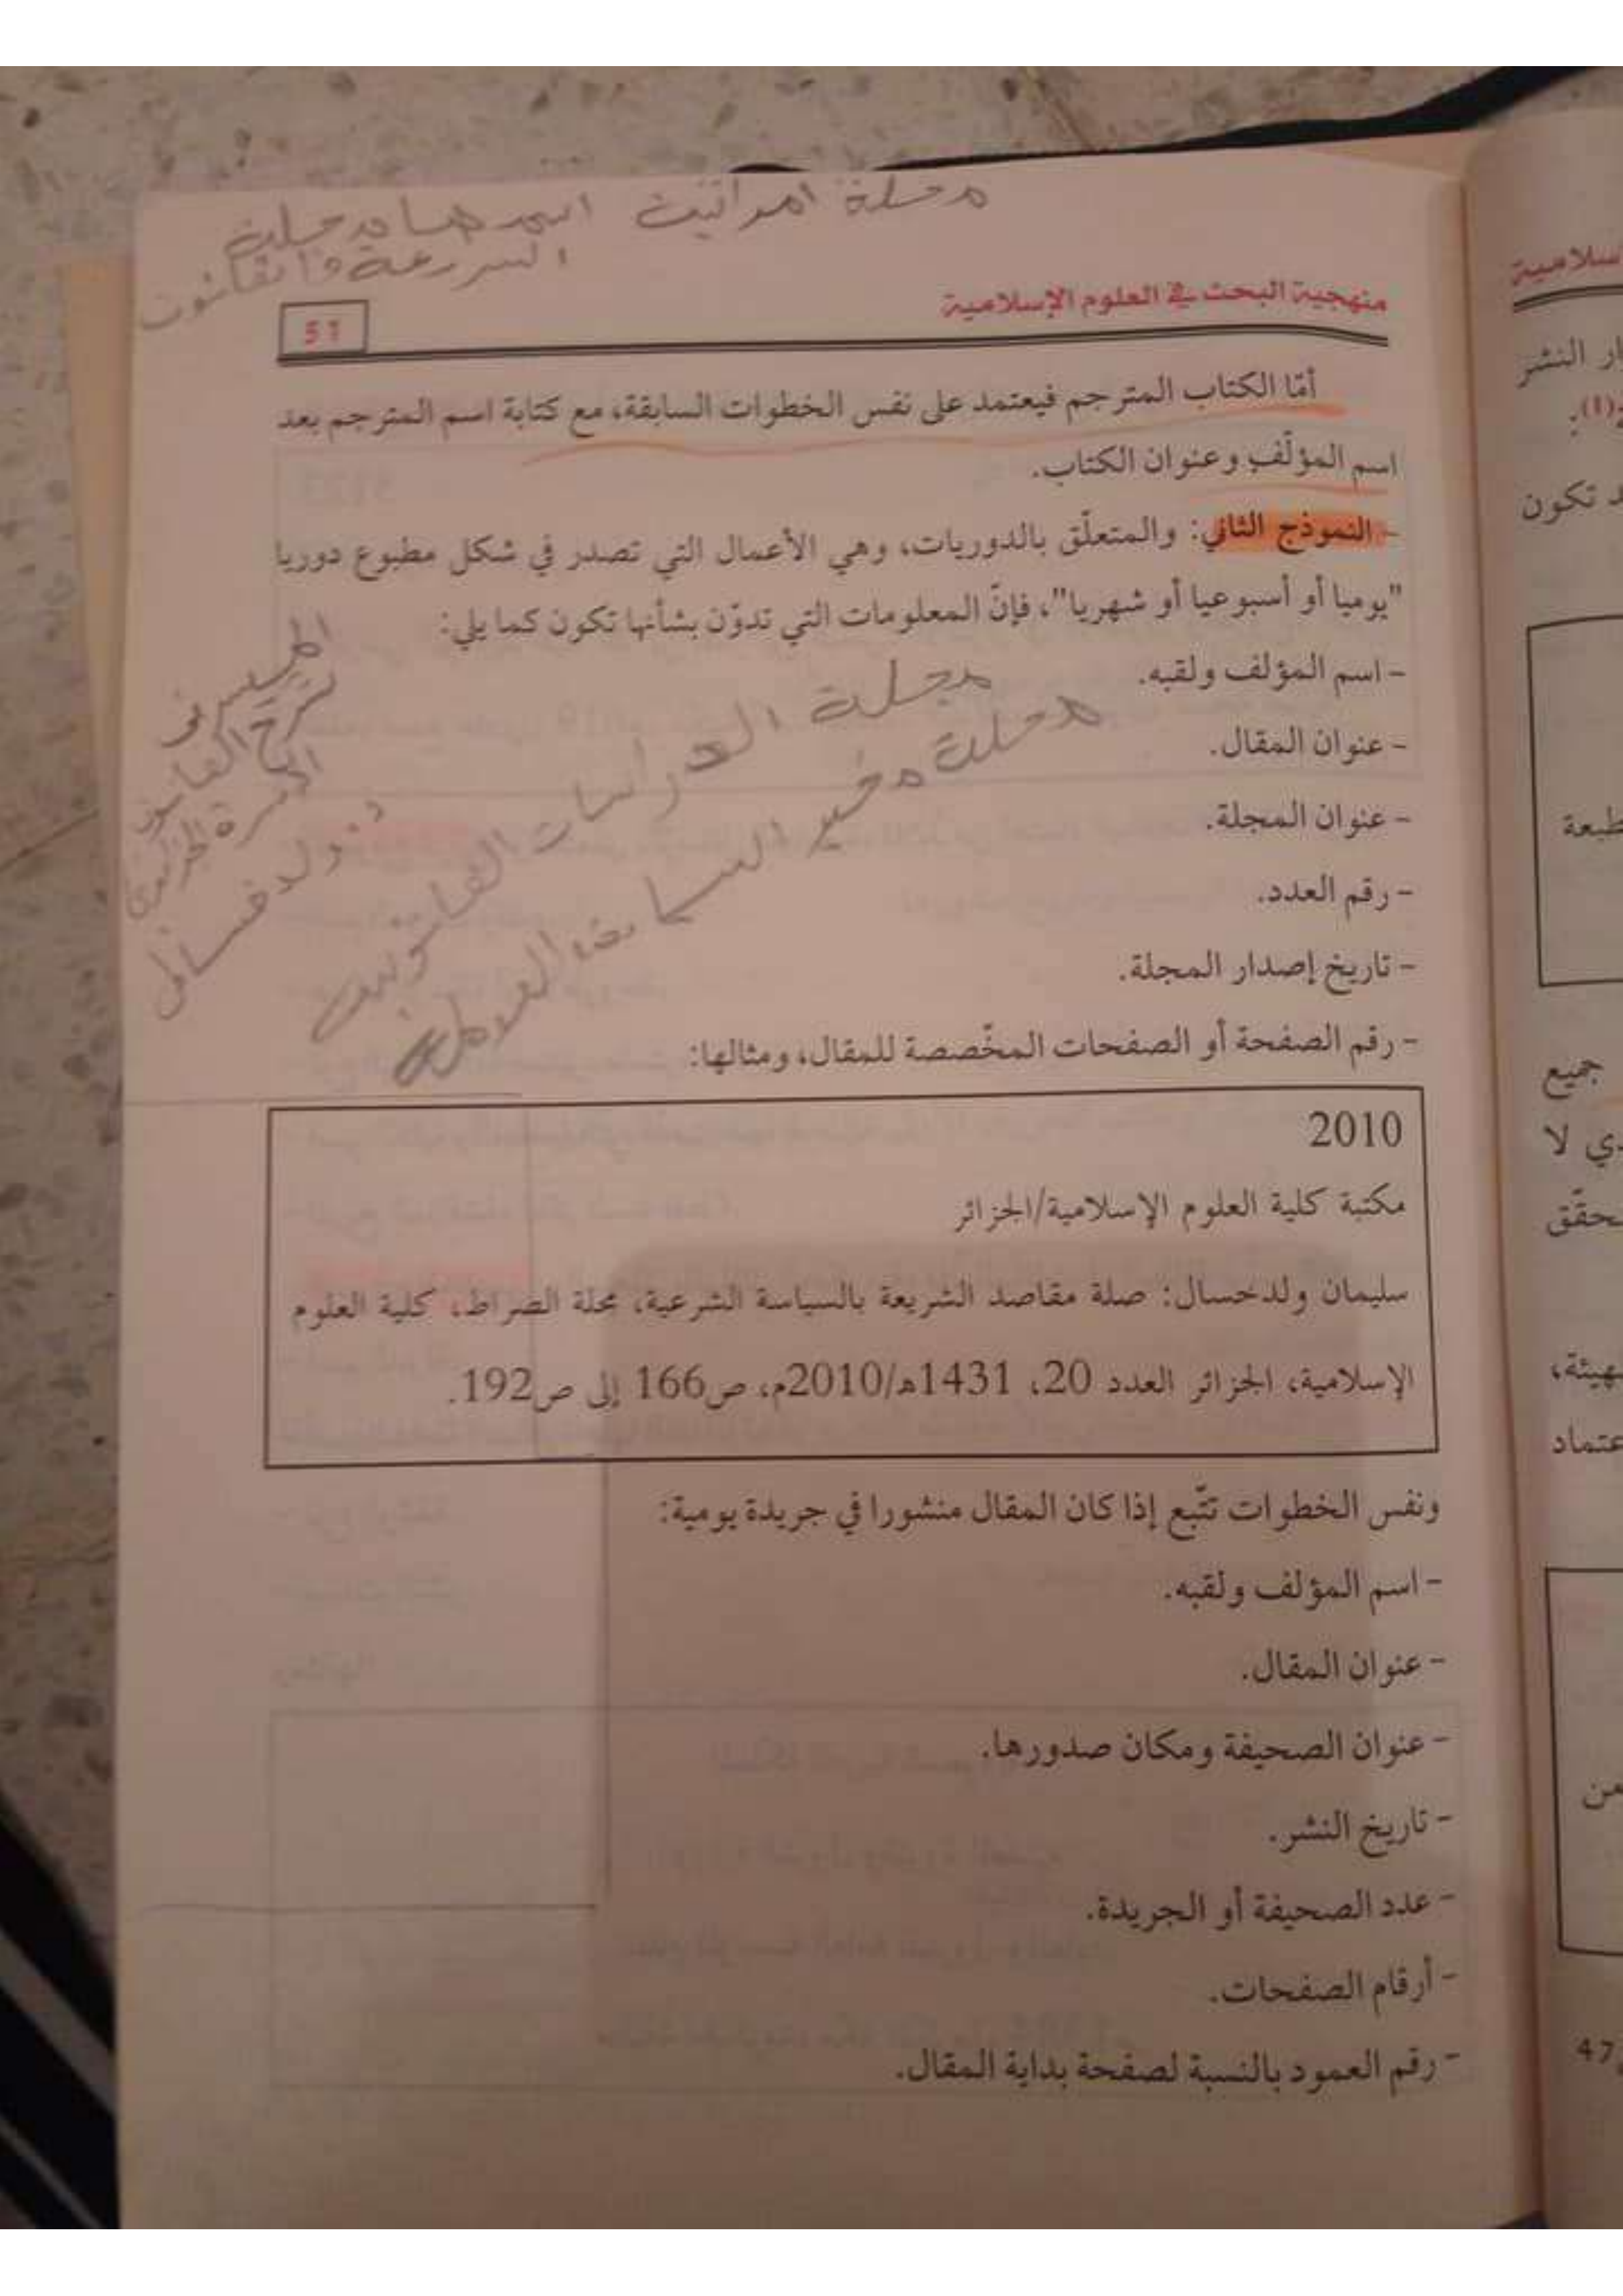 مجلة
اسمها مجلة
منهجية البحث في العلوم الإسلامية
51
أمّا الكتاب المترجم فيعتمد على نفس الخطوات السابقة، مع كتابة اسم المترجم بعد
اسم المؤلّف وعنوان الكتاب.
- النموذج الثاني: والمتعلّق بالدوريات، وهي الأعمال التي تصدر في شكل مطبوع دوريا
"يوميا أو أسبوعيا أو شهريا"، فإنّ المعلومات التي تدوّن بشأنها تكون كما يلي:
- اسم المؤلف ولقبه.
- عنوان المقال.
- عنوان المجلة.
- رقم العدد.
- تاريخ إصدار المجلة.
- رقم الصفحة أو الصفحات المخّصصة للمقال، ومثالها:
مجلة الدراسات القانونية
مجلة مخبر
شرح
2010
مكتبة كلية العلوم الإسلامية/الجزائر
سليمان ولدخسال: صلة مقاصد الشريعة بالسياسة الشرعية، مجلة الصراط، كلية العلوم
الإسلامية، الجزائر العدد 20، 1431ه/2010م، ص166 إلى ص192.
ونفس الخطوات تتّبع إذا كان المقال منشورا في جريدة يومية:
- اسم المؤلف ولقبه.
- عنوان المقال.
- عنوان الصحيفة ومكان صدورها.
- تاريخ النشر.
- عدد الصحيفة أو الجريدة.
- أرقام الصفحات.
- رقم العمود بالنسبة لصفحة بداية المقال.
ار النشر
(1).
تكون
طبعة
جميع
ي لا
حقّق
عتماد
من
47